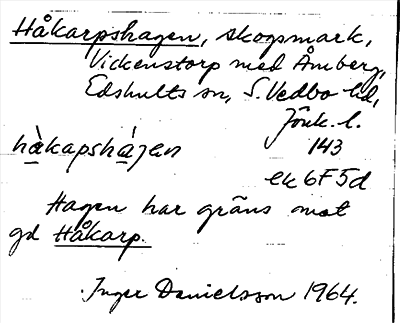 Håkarpshagen, skogsmark,
Vickenstorp med Åmberg,
Edshults sn, S. Vedbo hd,
Jönk. l.
hàkapshágen 143
ek 6F5d
Hagen har gräns mot
gd Håkarp.
Inger Danielsson 1964.